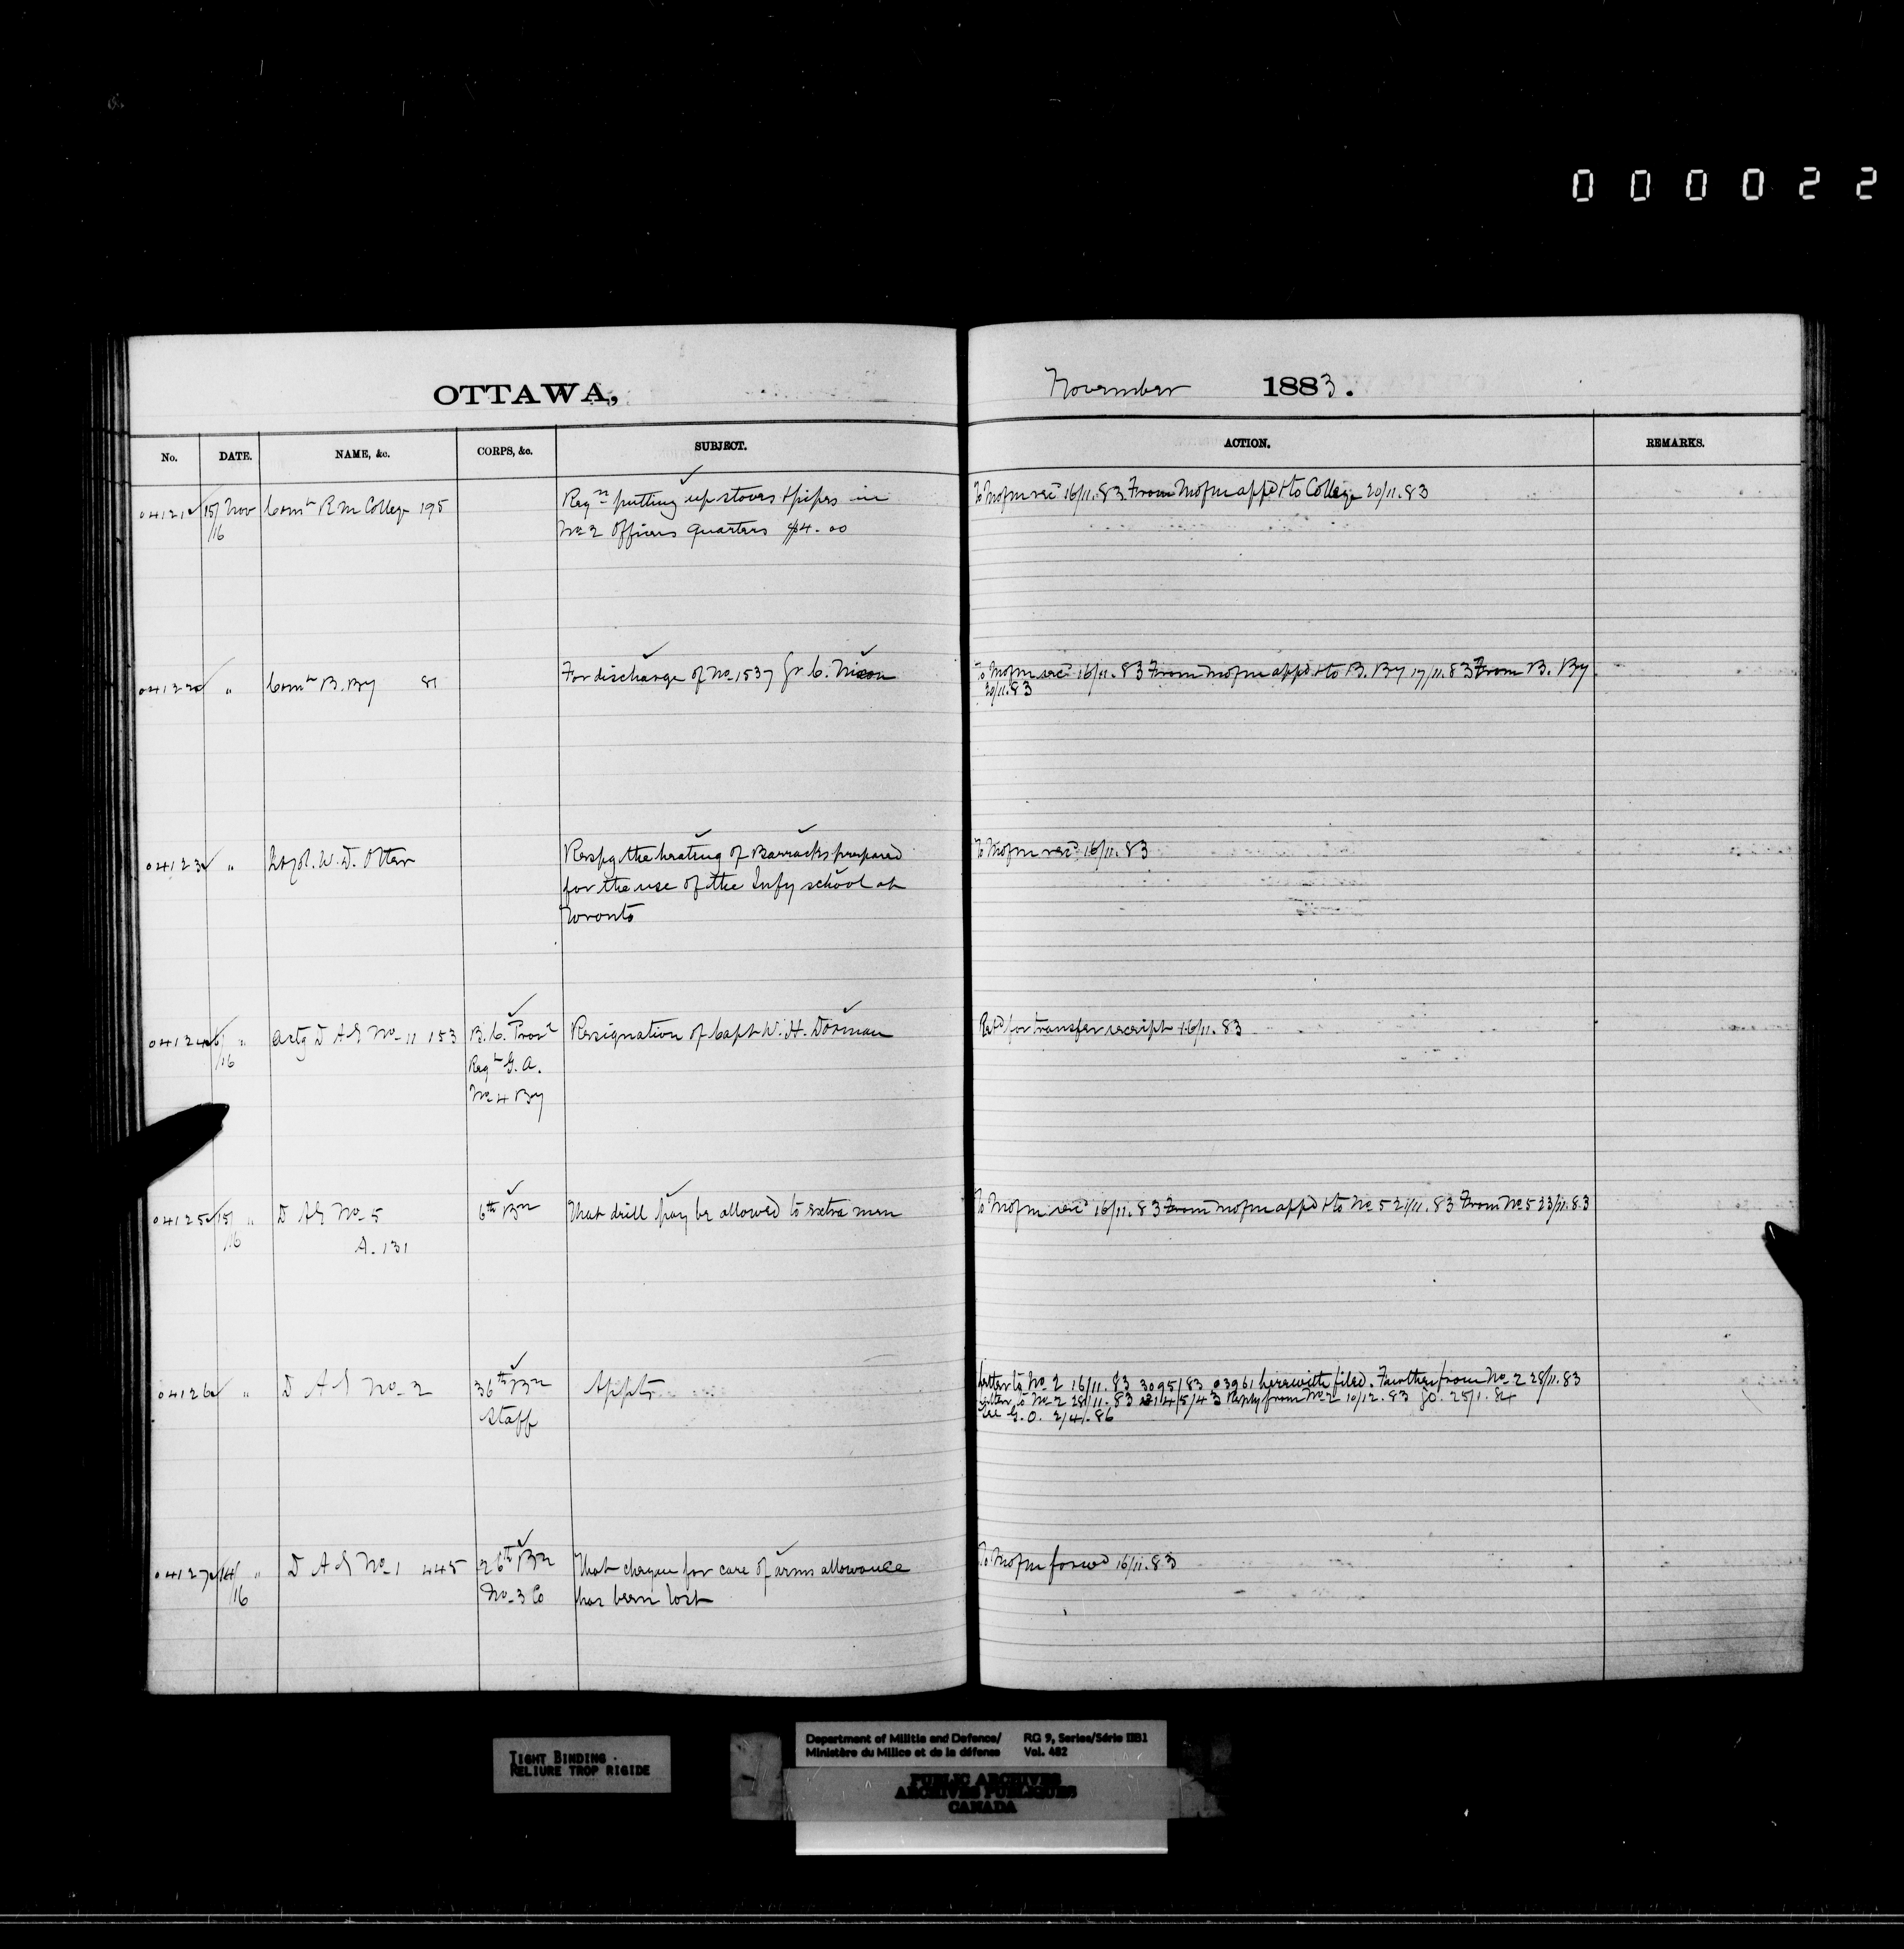 000022
OTTAWA, November 1883.
No. DATE. NAME, &c. CORPS, &c. SUBJECT. ACTION. REMARKS.
04121 15/16 Nov Comt R M College 195 Reqn putting up stoves & pipes in To Mofm rec 16/11.83 From Mofm appd & to College 20/11.83
No 2 Officers Quarters $4.00
04122 " Comt B. By 81 For discharge of No 1537 Gr C. Nixon To Mofm rec 16/11.83 From Mofm appd & to B. By 17/11.83 From B. By
20/11.83
04123 " Lt Col. W. D. Otter Respg the heating of Barracks prepared To Mofm rec 16/11.83
for the use of the Infy school at
Toronto
04124 16/16 " Actg D A G No 11 153 B. C. Provl Resignation of Capt W. H. Dorman Retd for transfer receipt 16/11.83
Regt G. A.
No 4 By
04125 15/16 " D A G No 5 6th Bn That drill pay be allowed to extra men To Mofm rec 16/11.83 From Mofm appd & to No 5 21/11.83 From No 5 23/11.83
A. 131
04126 " D A G No 2 36th Bn Appts Letter to No 2 16/11.83 3095/83 03961 herewith filed. Further from No 2 28/11.83
Staff Letter to No 2 28/11.83 Reply from No 2 10/12.83 GO. 25/1.84
See G. O. 2/4/.86
04127 14/16 " D A G No 1 445 26th Bn That cheque for care of arms allowance To Mofm forwd 16/11.83
No 3 Co has been lost
TIGHT BINDING
RELIURE TROP RIGIDE
Department of Militia and Defence/ RG 9, Series/Série IIB1
Ministère du Milice et de la défense Vol. 482
PUBLIC ARCHIVES
ARCHIVES PUBLIQUES
CANADA